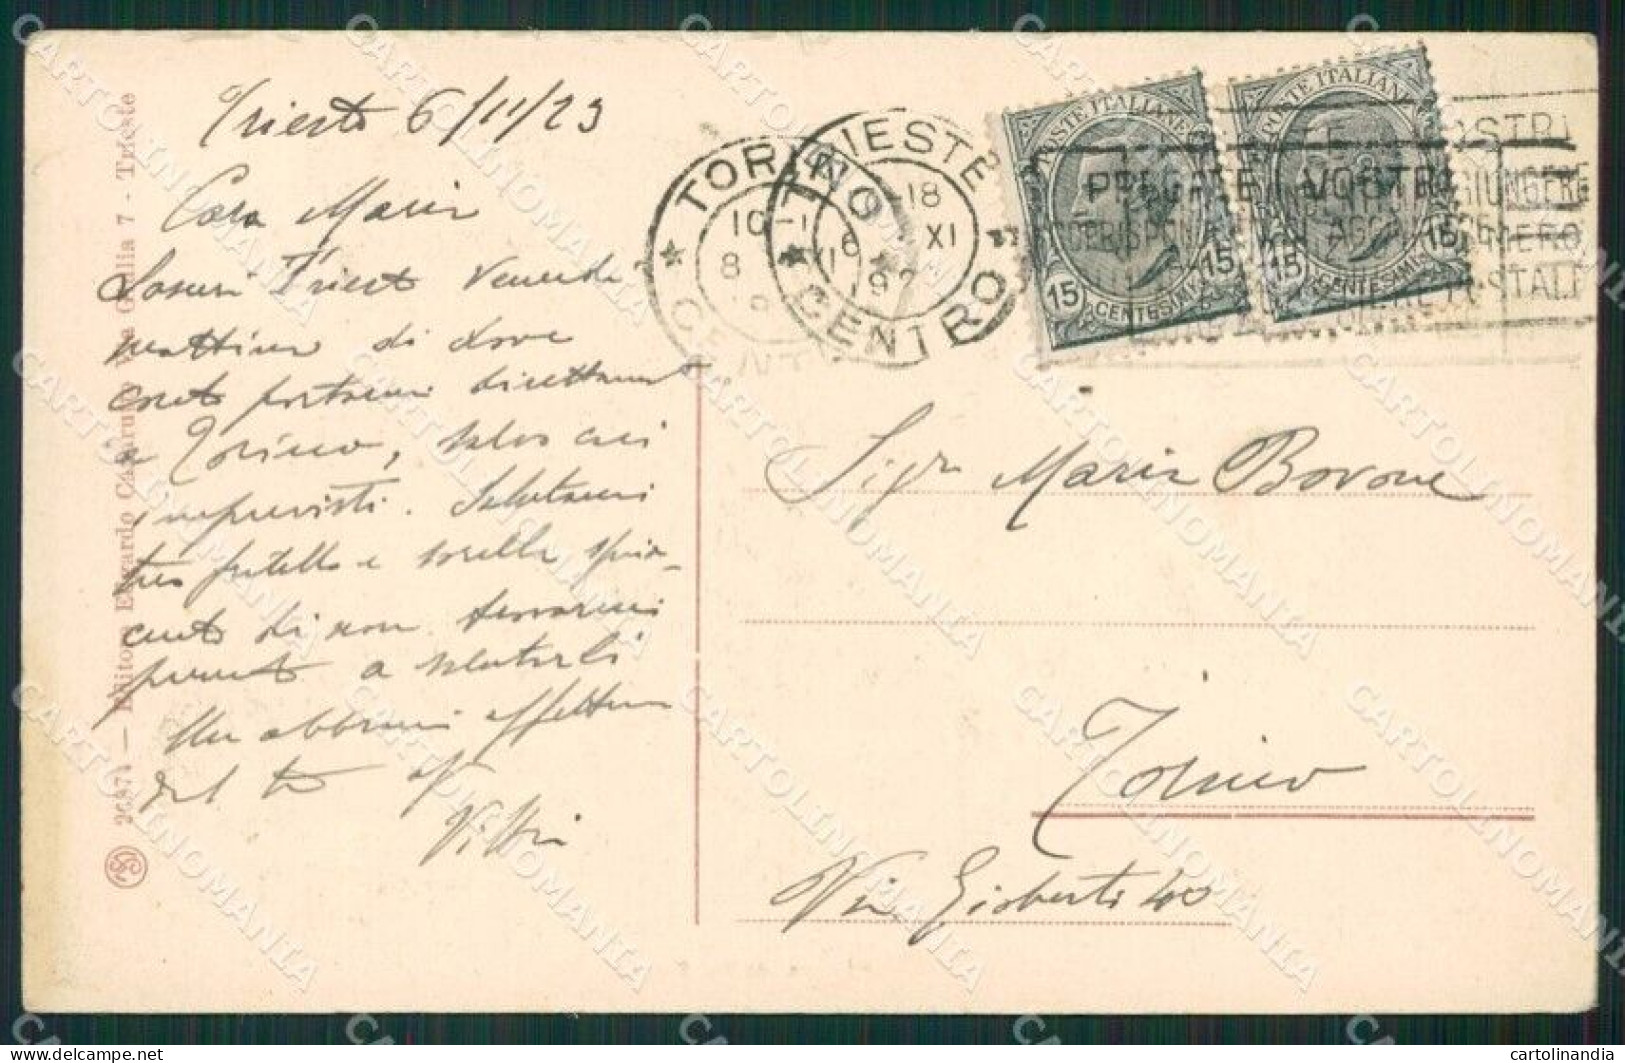 Trieste 6/11/23
Cara Maria
Lascerò Trieste Venerdì
mattina di dove
conto portarmi direttamente
a Torino, salvo casi
imprevisti. Salutami
tuo fratello e sorella
di non trovarmi
presente a salutarli
abbracci
dal tuo
26871 — Editore Edoardo Via 7 - Trieste
TORINO
CENTRO
10-1
8 XI
TRIESTE
CENTRO
-18
6 XI
192
POSTE ITALIANE
15 CENTESIMI 15
POSTE ITALIANE
15 CENTESIMI 15
PREGATE I VOSTRI
CORRISPONDENTI DI AGGIUNGERE
Sigra Maria Bovone
Torino
Via Gioberti 40
CARTOLINOMANIA
delcampe.net
cartolinandia